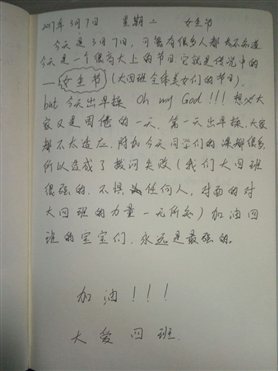 2017年3月7日 星期二 女生节
今天是3月7日，可能有很多人都不知道
今天是一个很高大上的节日它就是传说中的
—女生节（大四班全体美女们的节日）
but 今天出早操 Oh my God!!! 想必大
家又是困倦的一天，第一天出早操，大家
都不太适应，附加今天同学们的课都很多
所以造成了提问失败（我们大四班
很强的，不惧任何人，对面的对
大四班的力量一无所知）加油四
班的宝宝们，永远是最强的。
加油！！！
大爱四班